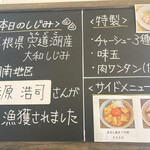 本日のしじみ
島根県宍道湖産
大和しじみ
南地区
原 浩司 さんが
漁獲されました
＜特製＞
・チャーシュー3種
・味玉
・肉ワンタン(1
＜サイドメニュー